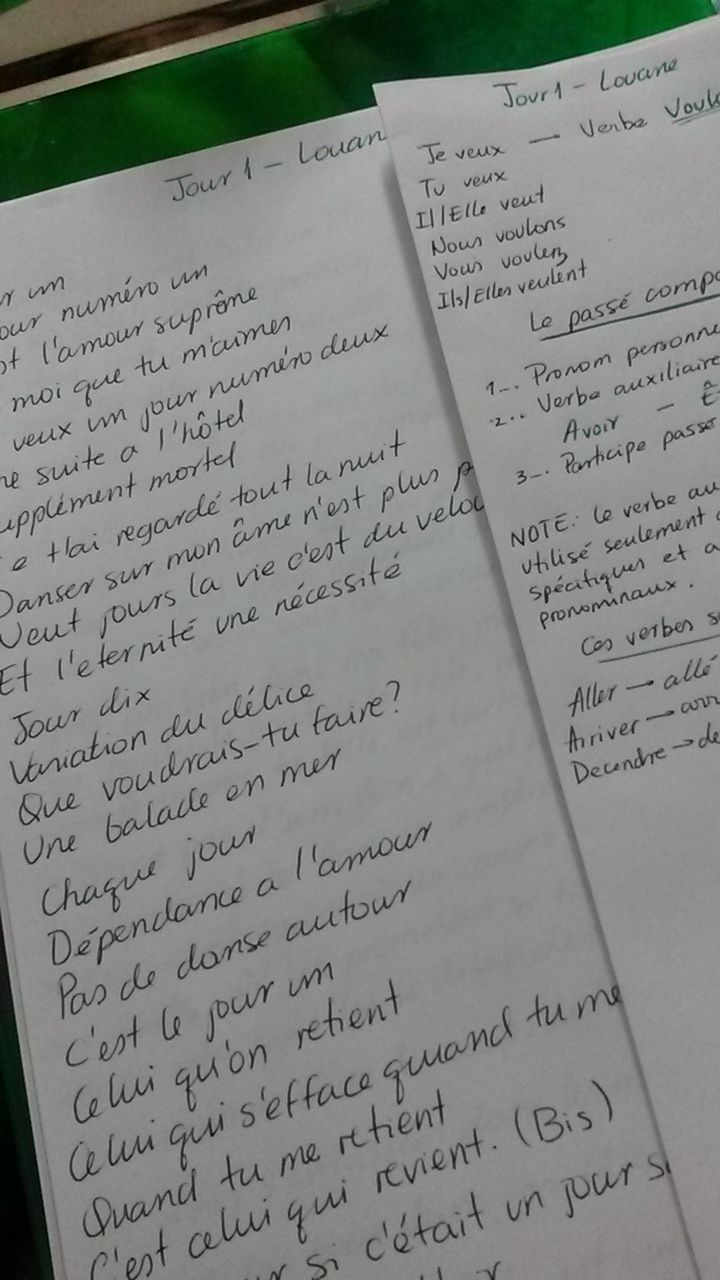 Jour 1 - Louan
un
numéro un
l'amour suprême
moi que tu m'aimes
veux un jour numéro deux
suite a l'hôtel
mortel
t'ai regardé tout la nuit
Danser sur mon âme n'est plus
jours la vie c'est du
Et l'eternité une nécessité
Jour dix
Variation du délice
Que voudrais-tu faire?
Une balade en mer
Chaque jour
Dépendance a l'amour
Pas de danse autour
C'est le jour un
Celui qu'on retient
Celui qui s'efface quand tu me
Quand tu me retient
C'est celui qui revient. (Bis)
si c'était un jour
Jour 1 - Louane
Je veux — Verbe
Tu veux
Il/Elle veut
Nous voulons
Vous voulez
Ils/Elles veulent
Le passé
1-. Pronom
2-. Verbe auxiliaire
Avoir -
3-. Participe passé
NOTE: Le verbe
utilisé seulement
spécifiques et
pronominaux.
Ces verbes
Aller → allé
Arriver →
Decendre →